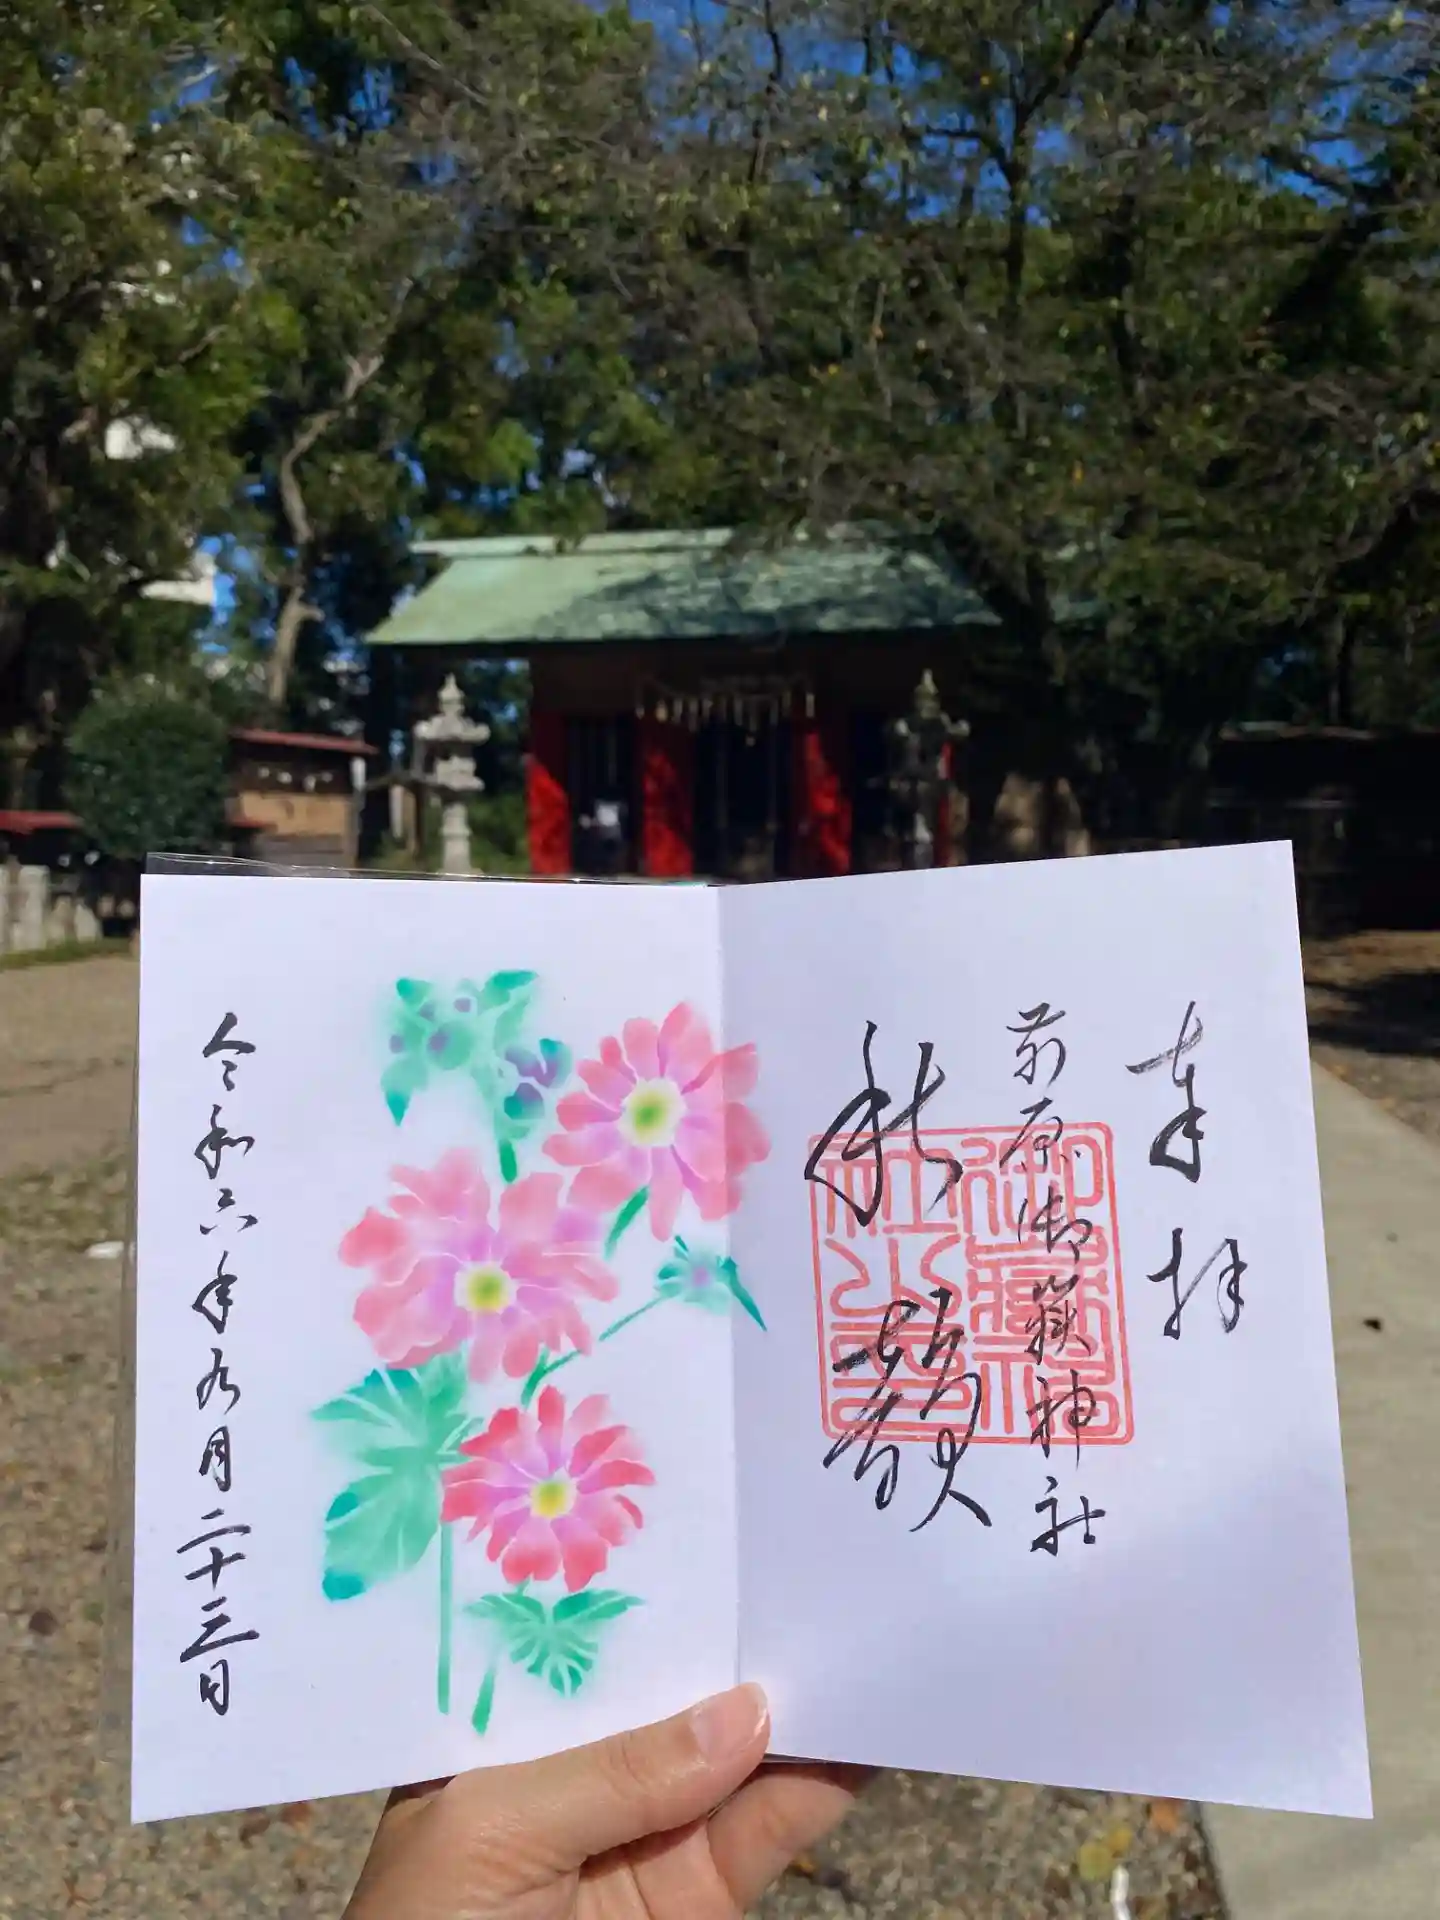 奉拝
前原御嶽神社
秋
御嶽神
社之
令和六年九月二十三日